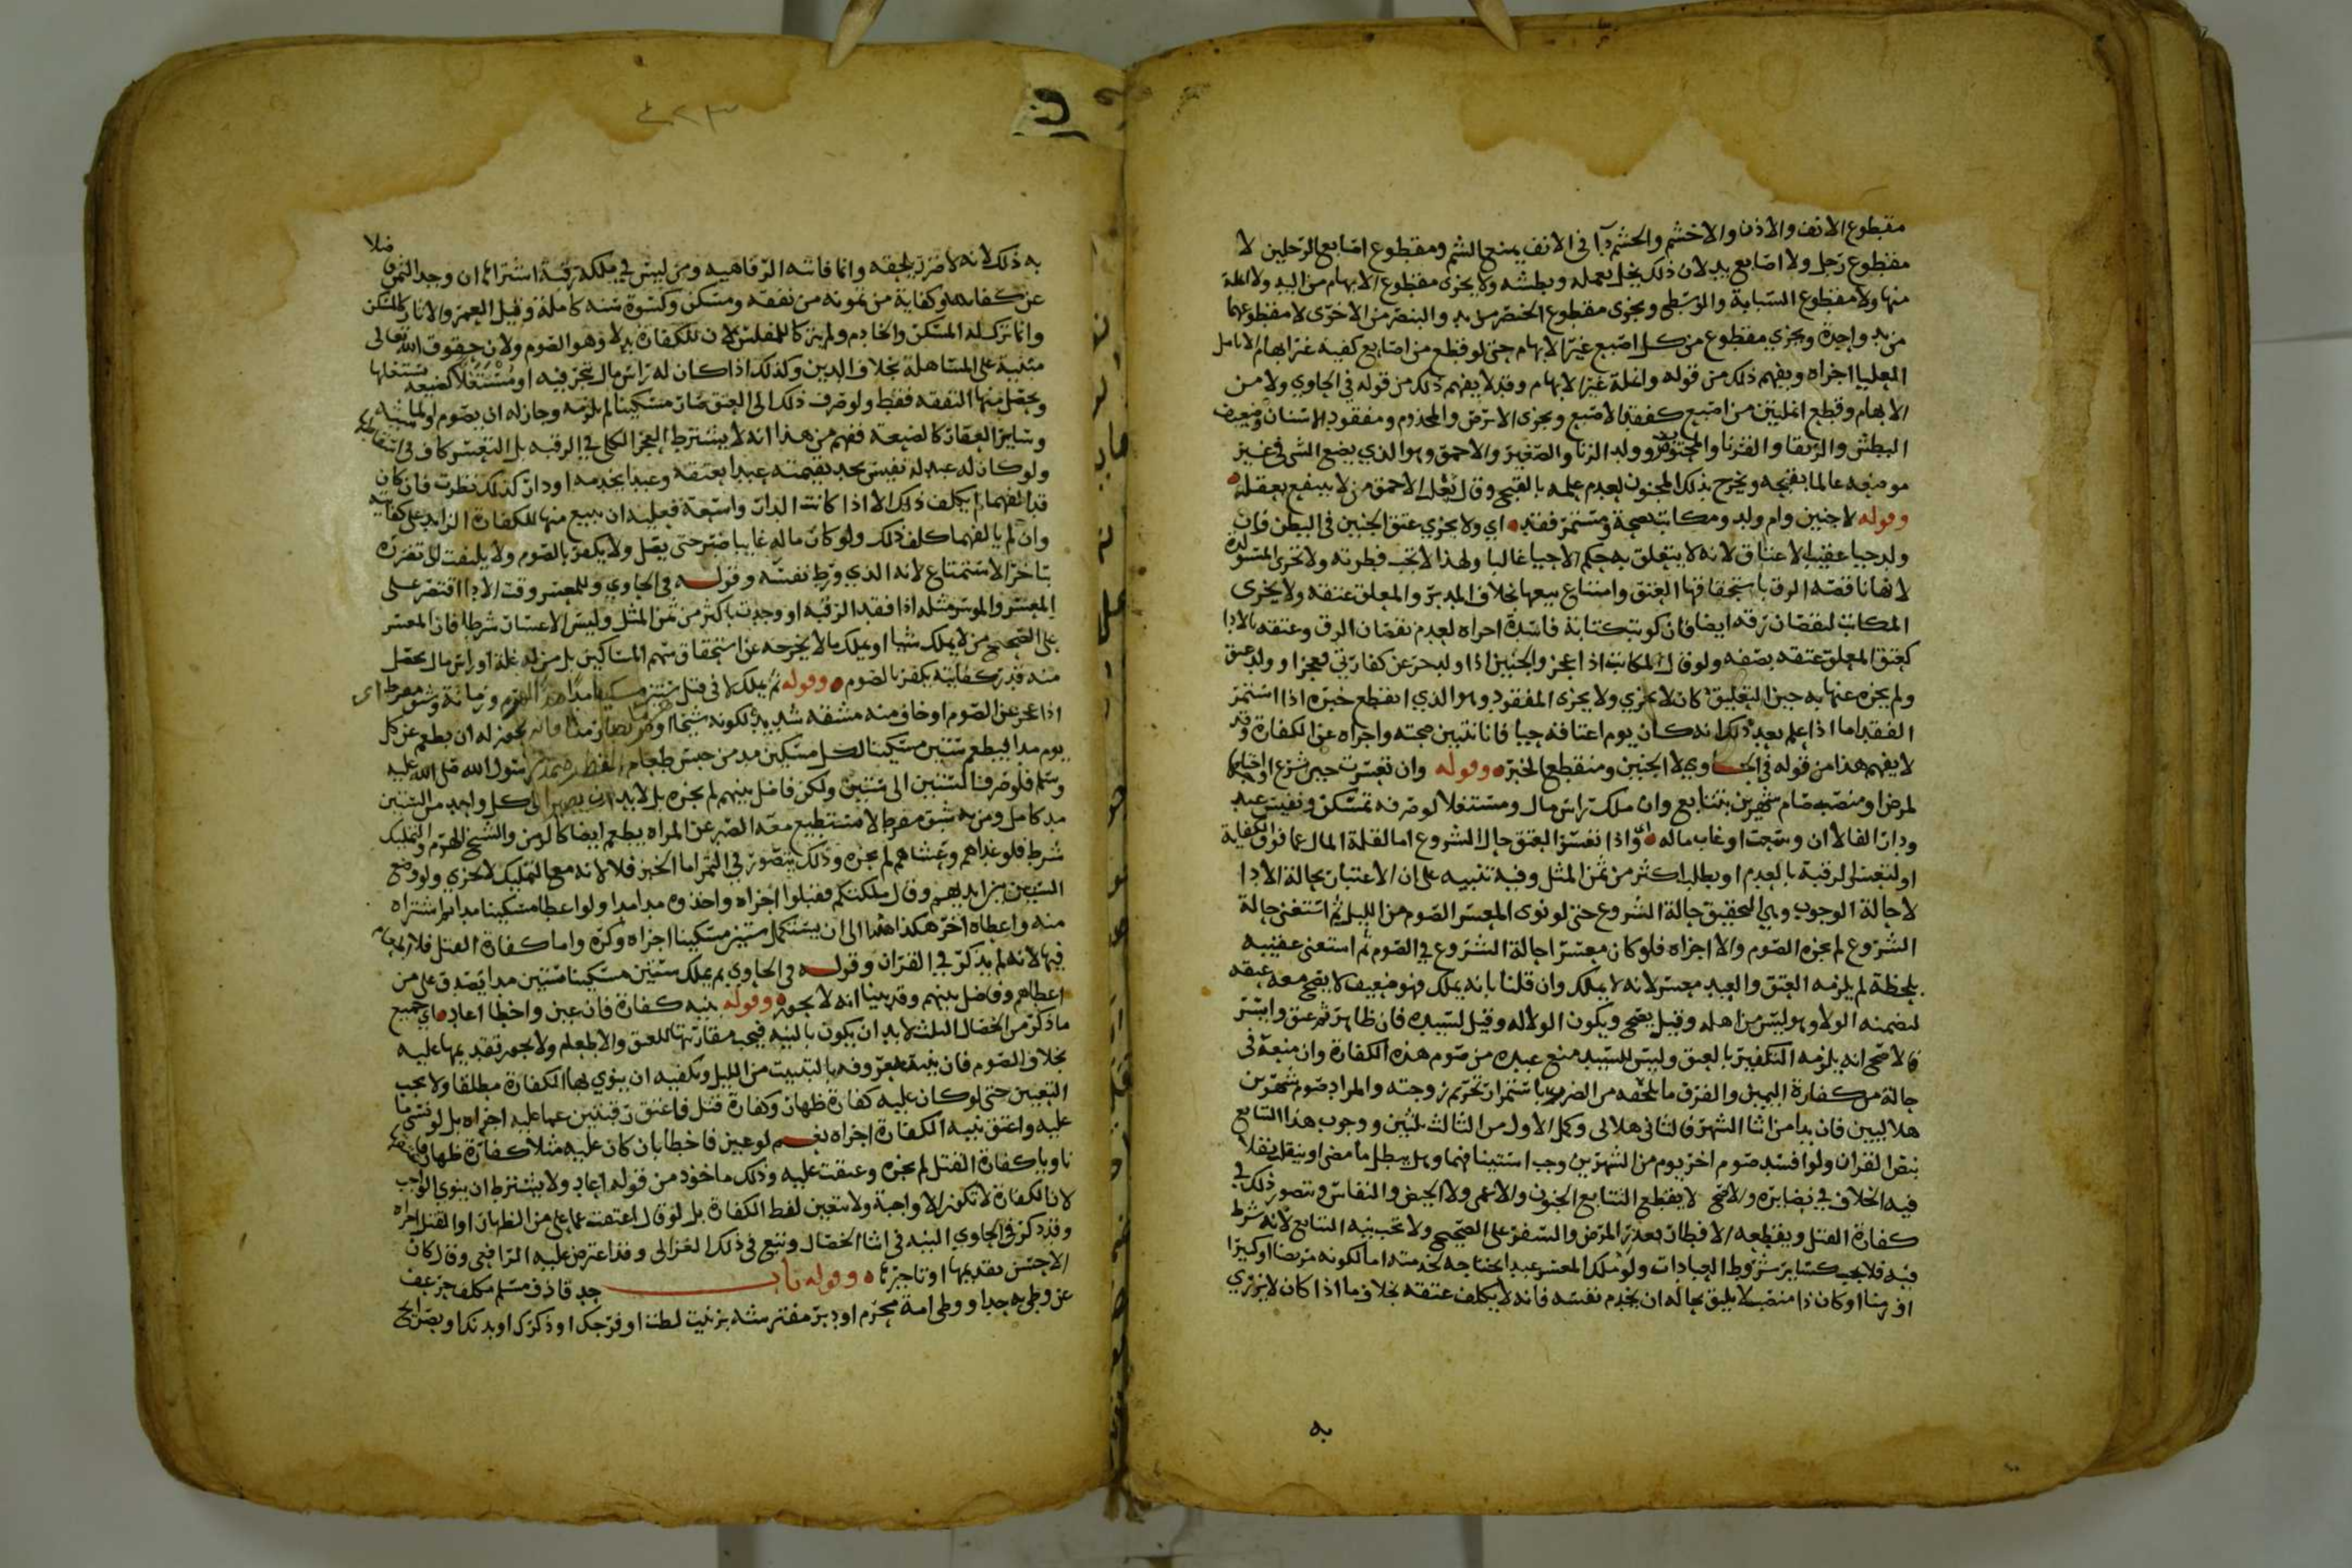 مقطوع الانف والاذن والاخشم والخشم دآ في الانف يمنع الشم ومقطوع اصابع الرجلين لا
مقطوع رجل ولا اصابع يد لان ذلك يخل بعمله وبطشه ولا يجزى مقطوع الابهام من اليد ولا انملة
منها ولا مقطوع السبابة والوسطى ويجزى مقطوع الخنصر من يد والبنصر من الاخرى لا مقطوعهما
من يد واحدة ويجزي مقطوع من كل اصبع غير الابهام حتى لو قطع من اصابع كفيه غير ابهام الانامل
العليا اجزاه ويفهم ذلك من قوله وانملة غير الابهام وقد لا يفهم ذلك من قوله في الحاوي ولا من
الابهام وقطع انملتين من اصبع كفقد الاصبع ويجزى الابرص والمجذوم ومفقود الاسنان وضعيف
البطش والرتقا والقرنا والمجنون وولد الزنا والصغير والاحمق وهو الذي يضع الشى في غير
موضعه عالما بقبحه ويخرج بذلك المجنون لعدم علمه بالقبح وقال ثعلب الاحمق من لا ينتفع بعقله
وقوله لا جنين وام ولد ومكاتب صحة ومستمر فقد اي ولا يجزي عتق الجنين في البطن فان
ولد حيا عقيب الاعتاق لانه لا يتعلق به حكم الاحيا غالبا ولهذا لا تجب فطرته ولا تجزى المستولدة
لانها ناقصه الرق باستحقاقها العتق وامتناع بيعها بخلاف المدبر والمعلق عتقه ولا يجزى
المكاتب لنقصان رقه ايضا فان كوتب كتابة فاسدة اجزاه لعدم نقصان الرق وعتقه بالادا
كعتق المعلق عتقه بصفه ولو قال للمكاتب اذا عجز والجنين اذا ولد حر عن كفارتي فعجز او ولد عتق
ولم يجزه عنها به حين التعليق كان لا يجزي ولا يجزى المفقود وهو الذي انقطع خبره اذا استمر
الفقد اما اذا علم بعد ذلك انه كان يوم اعتاقه حيا فانا نتبين صحته واجزاه عن الكفارة وقد
لا يفهم هذا من قوله في الحاوي لا الجنين ومنقطع الخبر وقوله وان تعسرت حين شرع او احتاجها
لمرض او منصب صام شهرين بتتابع وان ملك راس مال ومستغلا لو صرفه تمسكن ونفيس عبد
ودار الفا لا ان وسعت او غاب ماله اى واذا تعسر العتق حال الشروع اما لقلة المال عما فوق الكفاية
او لتعسر الرقبة بالعدم او بطلب اكثر من ثمن المثل وفيه تنبيه على ان الاعتبار بحالة الادا
لا حالة الوجوب وهي التحقيق حالة الشروع حتى لو نوى المعسر الصوم من الليل ثم استغنى حالة
الشروع لم يجزه الصوم والا اجزاه فلو كان معسرا حالة الشروع في الصوم ثم استغنى عقيبه
بلحظة لم يلزمه العتق والعبد معسر لانه لا يملك وان قلنا بانه يملك فهو ضعيف لا يصح معه عتقه
لتضمنه الولا وهو ليس من اهله وقيل يصح ويكون الولا له وقيل لسيده فان ظاهر ثم عتق وايسر
فالاصح انه يلزمه التكفير بالعتق وليس للسيد منع عبده من صوم هذه الكفارة وان منعه في
حالة من كفارة اليمين والفرق ما يلحقه من الضرر باستمرار تحريم زوجته والمراد صوم شهرين
هلاليين فان بدا من اثنا الشهر فالثاني هلالى وكمل الاول من الثالث ثلثين ووجوب هذا التتابع
بنص القران ولو افسد صوم اخر يوم من الشهرين وجب استينافهما وهل يبطل ما مضى او ينقلب نفلا
فيه الخلاف في نضايره والاصح لا يقطع التتابع الجنون والاغمى ولا الحيض والنفاس ويتصور ذلك في
كفارة القتل ويقطعه الافطار بعذر المرض والسفر على الصحيح ولا تجب نيه التتابع لانه شرط
فيه فلا يجب كساير شروط العبادات ولو ملك المعسر عبدا يحتاجه لخدمته اما لكونه مريضا او كبيرا
او زمنا او كان ذا منصب لا يليق بحاله ان يخدم نفسه فانه لا يكلف عتقه بخلاف ما اذا كان لا يزري
به
به ذلك لانه لا ضرر يلحقه وانما فاته الرفاهيه ومن ليس في ملكه رقبة اشتراها ان وجد الثمن فضلا
عن كفايته وكفاية من تمونه من نفقه ومسكن وكسوة سنه كاملة وقيل العمر والاثاث كالمسكن
وانما ترك له المسكن والخادم ولم يترك للمفلس لان للكفارة بدلا وهو الصوم ولان حقوق الله تعالى
مبنية على المساهلة بخلاف الدين وكذلك اذا كان له راس مال يتجر فيه او مستغلا كضيعة يستغلها
ويحصل منها النفقه فقط ولو صرف ذلك الى العتق صار مسكينا لم يلزمه وجاز له ان يصوم او لماشية
وساير العقار كالضيعة ففهم من هذا انه لا يشترط العجز الكلي في الرقبه بل التعسر كاف في
ولو كان له عبد نفيس يجد بقيمته عبدا يعتقه وعبدا يخدمه او دار كذلك نظرت فان كان
قد الفهما لم يكلف ذلك الا اذا كانت الدار واسعة فعليه ان يبيع منها للكفارة الزايد على كفايته
وان لم يالفهما كلف ذلك ولو كان ماله غايبا صبر حتى يصل ولا يكفر بالصوم ولا يلتفت الى تضرره
بتاخر الاستمتاع لانه الذي ورط نفسه وقوله في الحاوي وللمعسر وقت الادا اقتصر على
المعسر والموسر مثله اذا فقد الرقبه او وجدت باكثر من ثمن المثل وليس الاعسار شرطا فان المعسر
على الصحيح من لا يملك شيا او يملك ما لا يخرجه عن استحقاق سهم المساكين بل من له غلة او راس مال يحصل
منه قدر كفايته يكفر بالصوم وقوله ثم يملك لا في قتل ستين مسكينا مدا مدا لهرم وزمانة وشبق مفرط اى
اذا عجز عن الصوم او خاف منه مشقه شديدة لكونه شيخا او فانه يجوز له ان يطعم عن كل
يوم مدا ليطعم ستين مسكينا لكل مسكين مد من جنس طعام الفطره بمد رسول الله صلى الله عليه
وسلم فلو صرف الستين الى ستين ولكن فاضل بينهم لم يجزه بل لا بد ان يصرف الى كل واحد من الستين
مد كامل ومن به شبق مفرط لا يستطيع معه الصبر عن المراه يطعم ايضا كالزمن والشيخ الهرم والتمليك
شرط فلو غداهم وعشاهم لم يجزه وذلك يتصور في التمر اما الخبز فلا لانه مع التمليك لا يجزي ولو وضع
الستين بين ايديهم وقال ملكتكم فقبلوا اجزاه واخذوه مدا مدا ولو اعطا مسكينا مدا ثم اشتراه
منه واعطاه اخر هكذا ابدا الى ان يستكمل ستين مسكينا اجزاه وكره واما كفارة القتل فلا اطعام
فيها لانه لم يذكر في القران وقوله في الحاوي ثم يملك ستين مسكينا ستين مدا يصدق على من
اعطاهم وفاضل بينهم وقد بينا انه لا يجوز وقوله بنيه كفارة فان عين واخطا اعاد اي جميع
ما ذكر من الخصال الثلث لا بد ان يكون بالنيه فيجب مقارنتها للعتق والاطعام ولا يجوز تقديمها عليه
بخلاف الصوم فان نيته معروفه بالتبييت من الليل وتكفيه ان ينوي بها الكفارة مطلقا ولا يجب
التعيين حتى لو كان عليه كفارة ظهار وكفارة قتل فاعتق رقبتين عما عليه اجزاه بل لو نسى ما
عليه واعتق بنيه الكفارة اجزاه نعم لو عين فاخطا بان كان عليه مثلا كفارة ظهار
ناويا كفارة القتل لم يجزه وعتقت عليه وذلك ماخوذ من قوله اعاد ولا يشترط ان ينوي الواجب
لان الكفارة لا تكون الا واجبة ولا تتعين لفظ الكفارة بل لو قال اعتقت عما علي من الظهار او القتل اجزاه
وقد ذكر في الحاوي النيه في اثنا الخصال وتبع في ذلك الغزالى وقد اعترض عليه الرافعى وقال كان
الاحسن تقديمها او تاخيرها وقوله باب حد قاذف مسلم مكلف حر عف
عن وطى به حدا ووطى امة محرم او دبر مفترشه بزنيت لطت او فرجك او ذكرك او بدنك او بصرايح